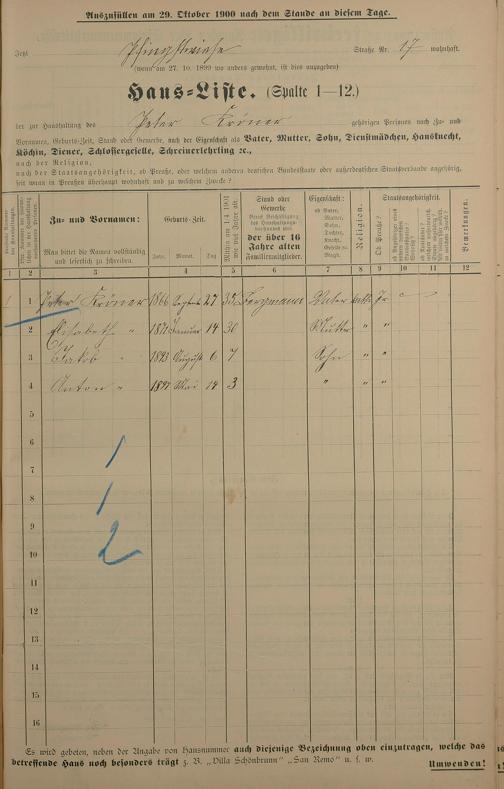 Auszufüllen am 29. Oktober 1900 nach dem Stande an diesem Tage.
Jetzt Pfingstwiese Straße Nr. 17 wohnhaft.
(wenn am 27. 10. 1899 wo anders gewohnt, ist dies anzugeben)
Haus-Liste. (Spalte 1—12.)
der zur Haushaltung des Peter Kröner gehörigen Personen nach Zu- und
Vornamen, Geburts-Zeit, Stand oder Gewerbe, nach der Eigenschaft als Vater, Mutter, Sohn, Dienstmädchen, Hausknecht,
Köchin, Diener, Schlossergeselle, Schreinerlehrling ꝛc.,
nach der Religion,
nach der Staatsangehörigkeit, ob Preuße, oder welchem anderen deutschen Bundesstaate oder außerdeutschen Staatsverbande angehörig,
seit wann in Preußen überhaupt wohnhaft und zu welchem Zwecke?
Zu- und Vornamen:
Man bittet die Namen vollständig
und leserlich zu schreiben.
Geburts-Zeit.
Jahr. Monat. Tag
Stand oder
Gewerbe
der über 16
Jahre alten
Familienmitglieder.
Eigenschaft:
ob Vater,
Mutter,
Sohn,
Tochter,
Knecht,
Geselle od.
Magd.
Religion.
Staatsangehörigkeit.
Ob Preuße?
Bemerkungen.
1 2 3 4 5 6 7 8 9 10 11 12
1 1 Peter Kröner 1866 27 35 Bergmann Vater kath. Ja
2 Elisabeth " 1871 Januar 14 30 Mutter " "
3 Jakob " 1893 August 6 7 Sohn " "
4 Anton " 1897 Mai 14 3 " " "
5
6
7
8
9
10
11
12
13
14
15
16
1
1
2
Es wird gebeten, neben der Angabe von Hausnummer auch diejenige Bezeichnung oben einzutragen, welche das
betreffende Haus noch besonders trägt z. B. „Villa Schönbrunn" „San Remo" u. s. w. Umwenden!